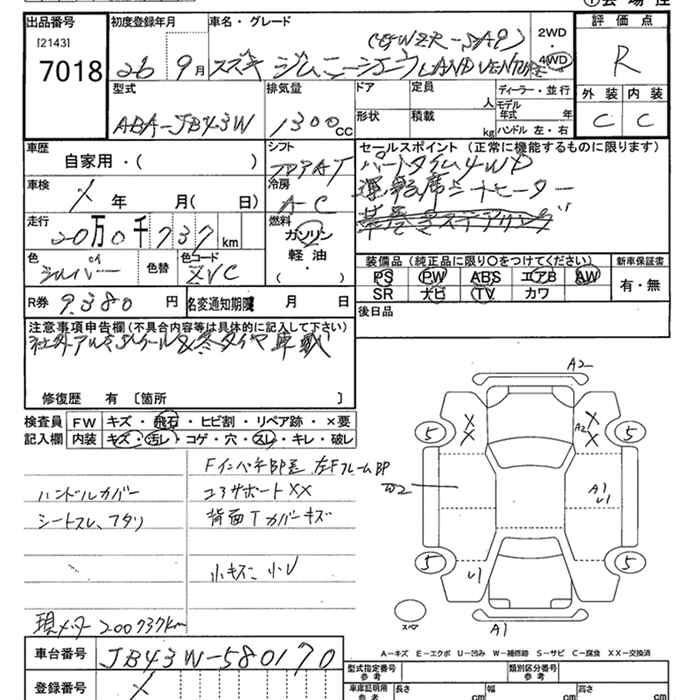 出品番号
[2143]
7018
初度登録年月
26 9月
車名・グレード
スズキ ジムニーシエラ LAND VENTURE
2WD
・
4WD
評価点
R
外装 内装
C C
型式
ABA-JB43W
排気量
1300cc
ドア
形状
定員
人
積載
kg
ディーラー・並行
モデル
年式 年
ハンドル 左・右
車歴
自家用・( )
シフト
FAT
セールスポイント (正常に機能するものに限ります)
パートタイム4WD
運転席シートヒーター
車検
年 月( 日)
冷房
A-C
走行
20万0千737km
燃料
ガソリン
・
軽油
・
( )
色
シルバー
色替
色コード
Z2C
装備品(純正品に限り〇をつけてください)
PS PW ABS エアB AW
SR ナビ TV カワ
新車保証書
有・無
R券 9,380円
名変通知期限 月 日
後日品
注意事項申告欄(不具合内容等は具体的に記入して下さい)
社外アルミホイール&冬タイヤ車載
修復歴 有 〔箇所 〕
検査員
記入欄
FW キズ・飛石・ヒビ割・リペア跡・×要
内装 キズ・汚レ・コゲ・穴・スレ・キレ・破レ
ハンドルカバー
シートスレ、フタリ
Fインパネ BP歪 左Fフレーム BP
コアサポートXX
背面Tカバーキズ
小キズ 小U
現メーター200737km
A2
X X
X X
A2
5 5
W2
A1
U1
5 5
U1
スペア
A1
A-キズ E-エクボ U-凹み W-補修跡 S-サビ C-腐食 XX-交換済
車台番号 JB43W-580170
登録番号
型式指定番号
参考
類別区分番号
参考
車庫証明用
参考
長さ cm
幅 cm
高さ cm